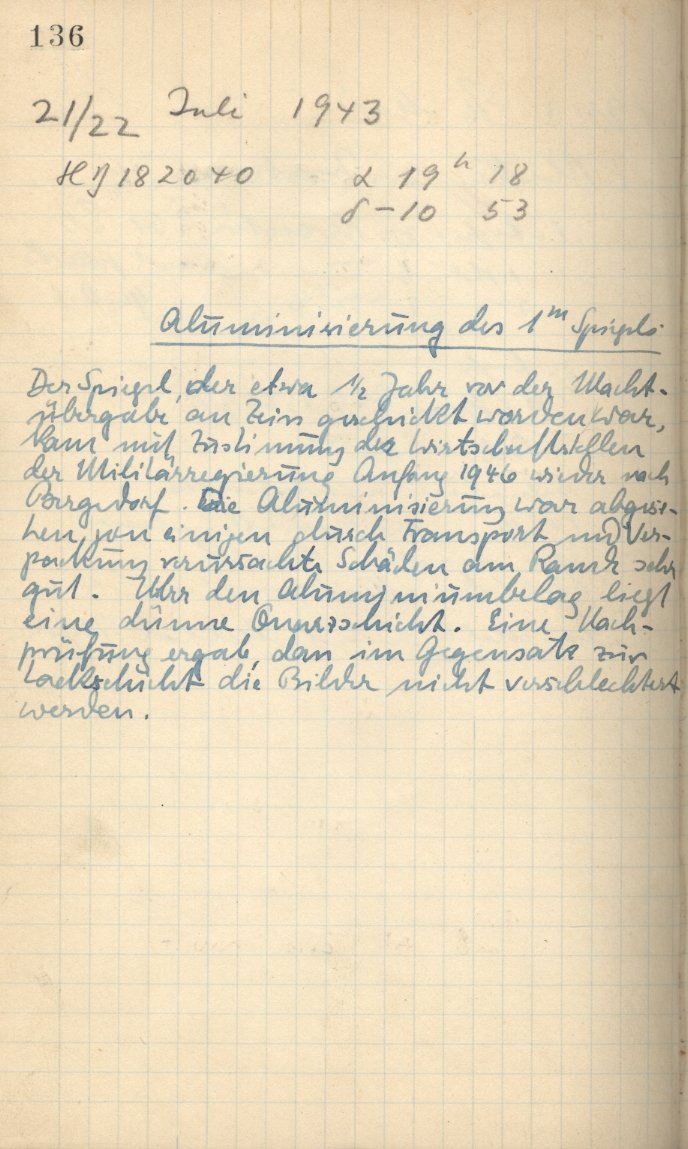 136
21/22 Juli 1943
HD 182040 α 19h 18
δ -10 53
Aluminisierung des 1m Spiegels
Der Spiegel, der etwa 1/2 Jahr vor der Macht-
übergabe an Zeiss geschickt worden war,
kam mit Zustimmung der Wirtschaftsstellen
der Militärregierung Anfang 1946 wieder nach
Bergedorf. Die Aluminisierung war abgese-
hen von einigen durch Transport und Ver-
packung verursachte Schäden am Rande sehr
gut. Über den Aluminiumbelag liegt
eine dünne Quarzschicht. Eine Nach-
prüfung ergab, dass im Gegensatz zur
Lackschicht die Bilder nicht verschlechtert
werden.